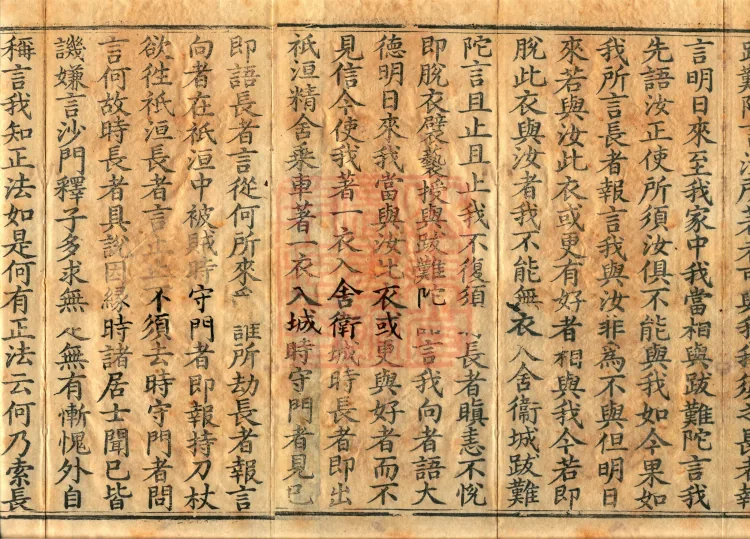 言明日來至我家中我當相與跋難陀言我
先語汝正使所須汝俱不能與我如今果如
我所言長者報言我與汝非為不與但明日
來若與汝此衣或更有好者相與我今若即
脫此衣與汝者我不能無衣入舍衛城跋難
陀言且止且止我不復須長者瞋恚不悅
即脫衣襞藝授與跋難陀言我向者語大
德明日來我當與汝此衣或更與好者而不
見信今使我著一衣入舍衛城時長者即出
祇洹精舍乘車著一衣入城時守門者見已
即語長者言從何所來誰所劫長者報言
向者在祇洹中被賊時守門者即報持刀杖
欲往祇洹長者言止不須去時守門者問
言何故時長者具說因緣時諸居士聞已皆
譏嫌言沙門釋子多求無無有慚愧外自
稱言我知正法如是何有正法云何乃索長